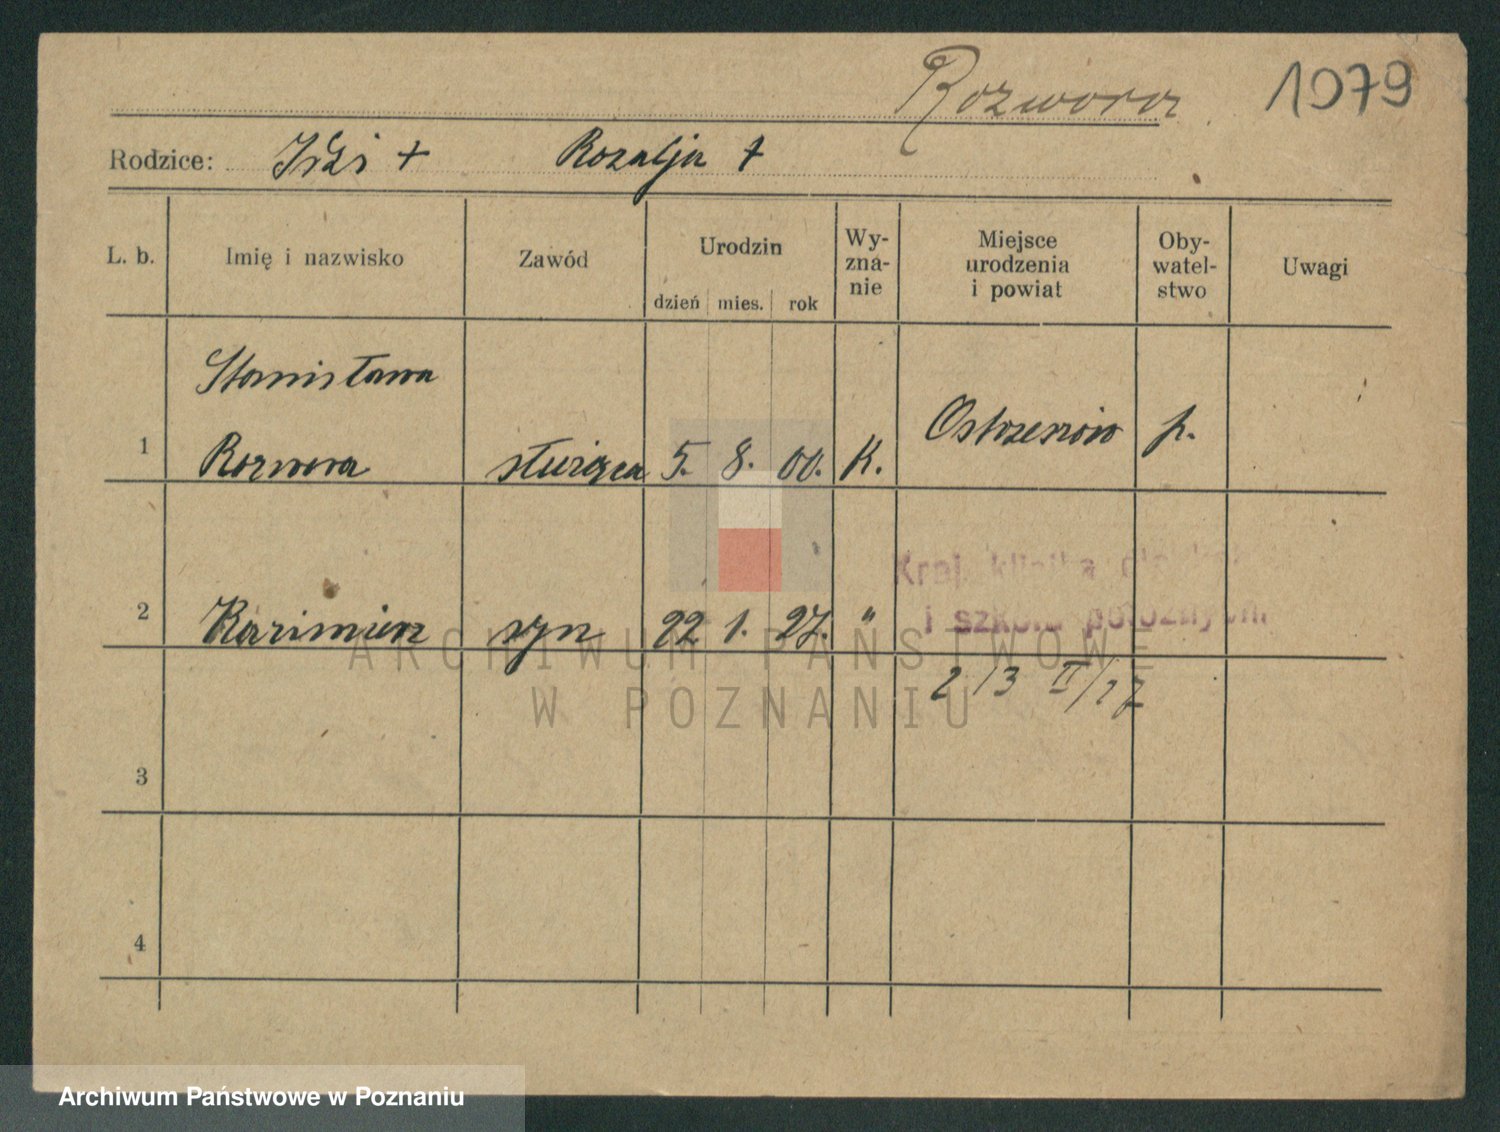 Rozwora 1079
Rodzice: Rozalja +
L. b. Imię i nazwisko Zawód Urodzin dzień mies. rok Wy-zna-nie Miejsce urodzenia i powiat Oby-watel-stwo Uwagi
Stanisława
1 Rozwora służąca 5. 8. 00. K. Ostrzeszów p.
Kraj. klinika
i szkoła położnych.
2 Kazimierz syn 22 1. 27. "
2/3 II/27
3
4
ARCHIWUM PAŃSTWOWE
W POZNANIU
Archiwum Państwowe w Poznaniu